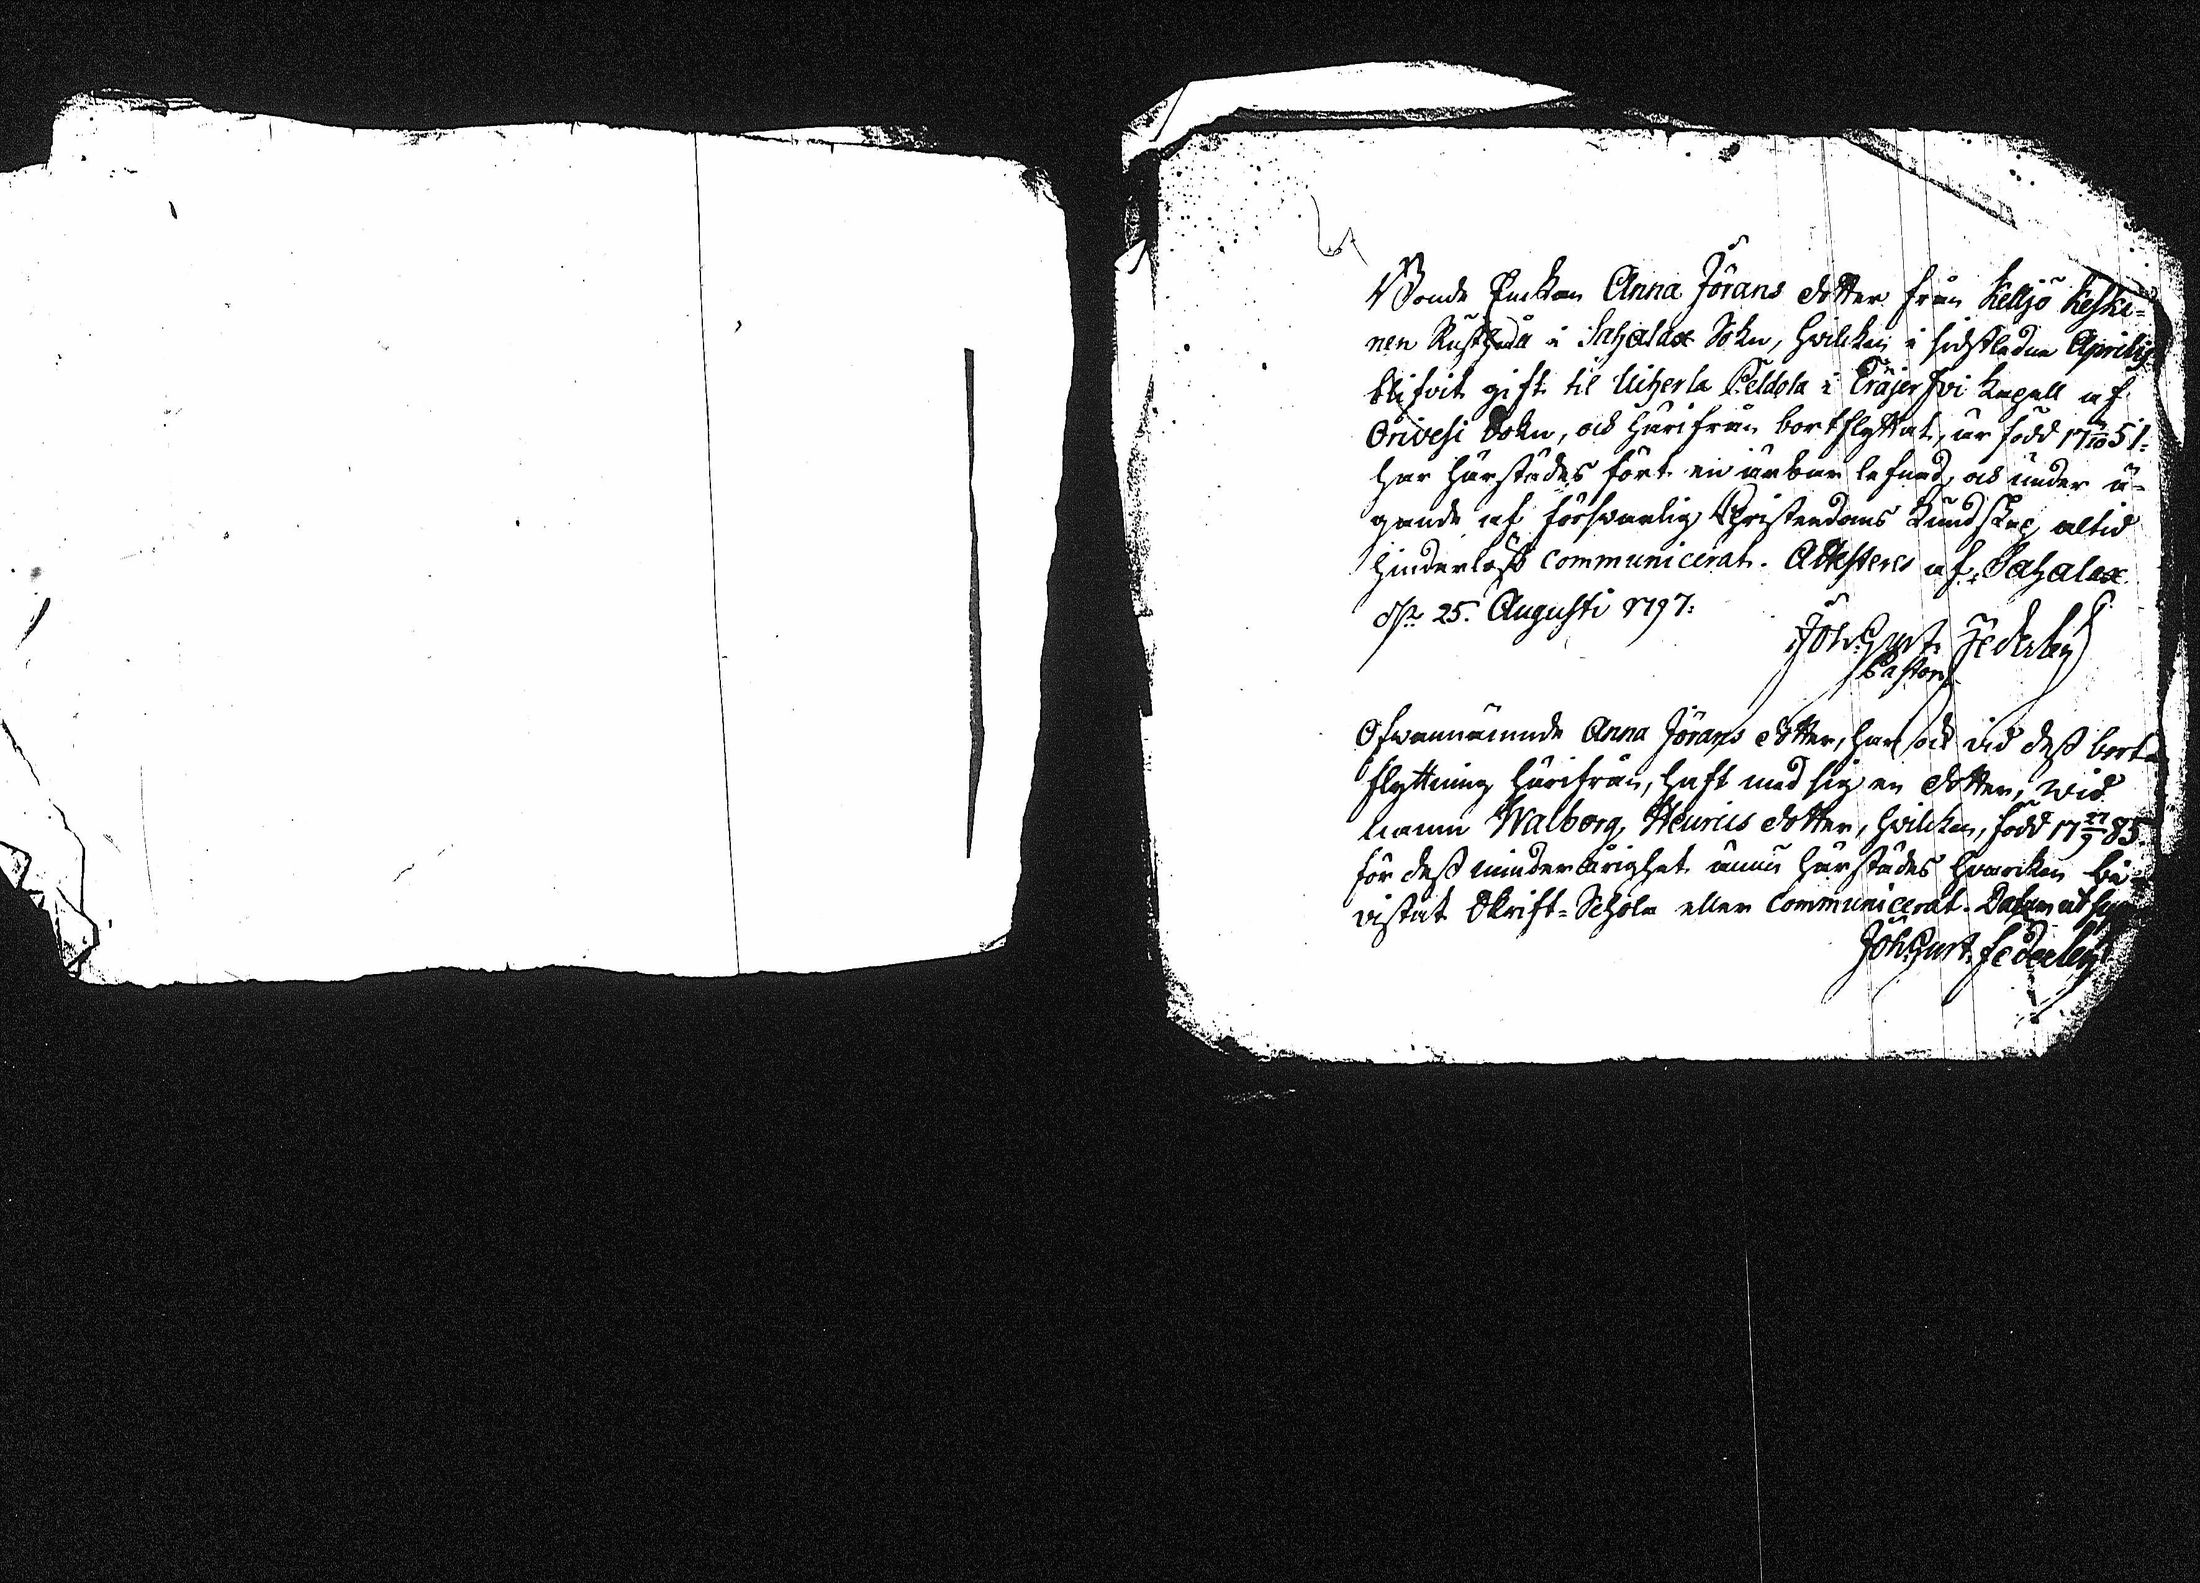 Bonde Enckan Anna Jörans dotter från Keljo Keski-
nen Rusthåll i Sahalax Sokn, hvilcken i sidstledne Aprilis
blifvit gift til Uiherla Peldola i Eräjerfvi Capell af
Orivesi Sokn, och härifrån bortflyttat, är född 17 10 51.
har härstädes fört en ärbar lefnad, och under ä-
gande af försvarlig Christendoms Kundskap altid
hinderlöst communicerat. Attesteres af Sahalax
d. 25. Augusti 1797.
Joh. Gust. Federley
Pastor
Ofvannämnde Anna Jörans dotter, har ock vid dess bort-
flyttning härifrån, haft med sig en dotter, wid
namn Walborg Henrics dotter, hvilcken, född 17 27/9 85.
för dess minderårighet ännu härstädes hvarcken be-
vistat Skrift-Schola eller communicerat. Datum ut supra
Joh. Gust. Federley